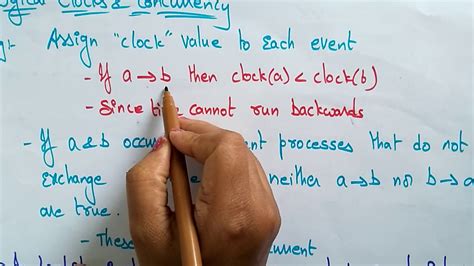 Logical Clocks & Concurrency
Assign "clock" value to Each event
- If a → b then clock(a) < clock(b)
- Since time cannot run backwards
- If a & b occu ent processes that do not
Exchange neither a → b nor b → a
are true.
- These current